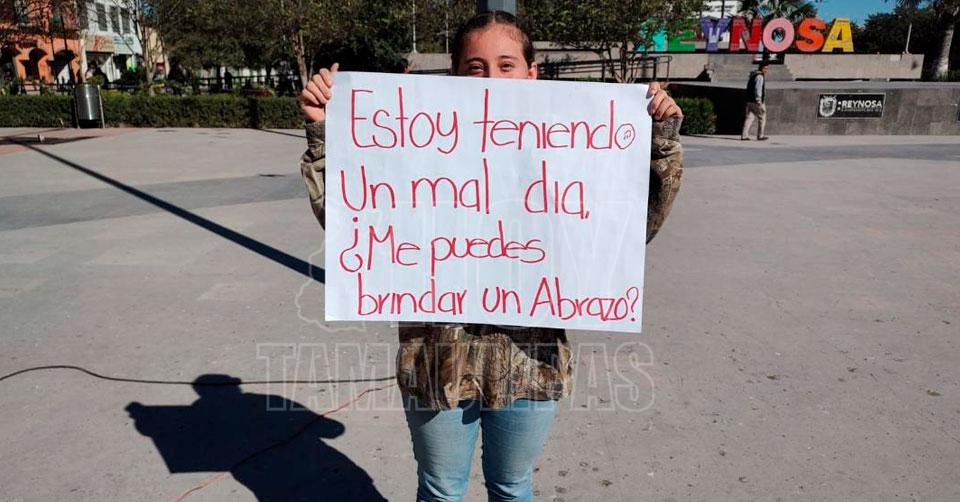 EYNOSA
REYNOSA
Estoy teniendo
Un mal dia,
¿Me puedes
brindar un Abrazo?
HOY
TAMAULIPAS